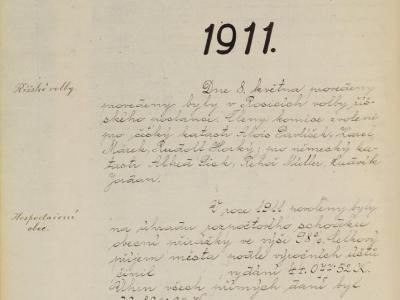 1911.
Říšské volby.
Dne 8. května provedeny
provedeny byly v Rosicích volby říš-
ského poslance. Členy komise zvoleni
pro český katastr Alois Pavlíček, Karel
Márek, Rudolf Horký; pro německý ka-
tastr Alfred Rehoř Müller, Ludvík
Jordan.
Hospodaření
obce.
V roce 1911 povoleny byly
na úhradu rozpočtového schodku
obecní přirážky ve výši 98%. Celkový
příjem města podle výročních účtů
činil vydání 44.077.52 K.
všech přímých daní byl